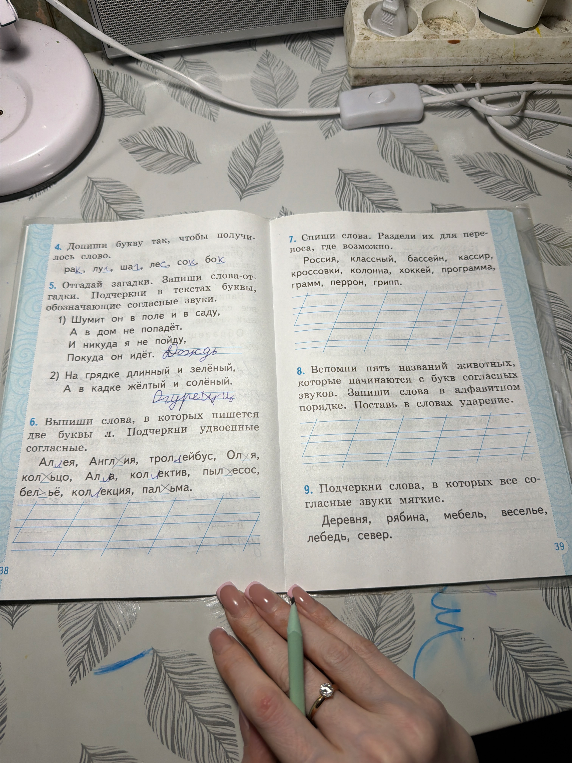 4. Допиши букву так, чтобы получи-
лось слово.
рак, лу, ша, лес, сок, бок
5. Отгадай загадки. Запиши слова-от-
гадки. Подчеркни в текстах буквы,
обозначающие согласные звуки.
1) Шумит он в поле и в саду,
А в дом не попадёт.
И никуда я не пойду,
Покуда он идёт. дождь
2) На грядке длинный и зелёный,
А в кадке жёлтый и солёный.
Огурец
6. Выпиши слова, в которых пишется
две буквы л. Подчеркни удвоенные
согласные.
Ал_ея, Англ_ия, трол_ейбус, Ол_я,
кол_ьцо, Ал_а, кол_ектив, пыл_есос,
бел_ьё, кол_екция, пал_ьма.
38
7. Спиши слова. Раздели их для пере-
носа, где возможно.
Россия, классный, бассейн, кассир,
кроссовки, колонна, хоккей, программа,
грамм, перрон, грипп.
8. Вспомни пять названий животных,
которые начинаются с букв согласных
звуков. Запиши слова в алфавитном
порядке. Поставь в словах ударение.
9. Подчеркни слова, в которых все со-
гласные звуки мягкие.
Деревня, рябина, мебель, веселье,
лебедь, север.
39